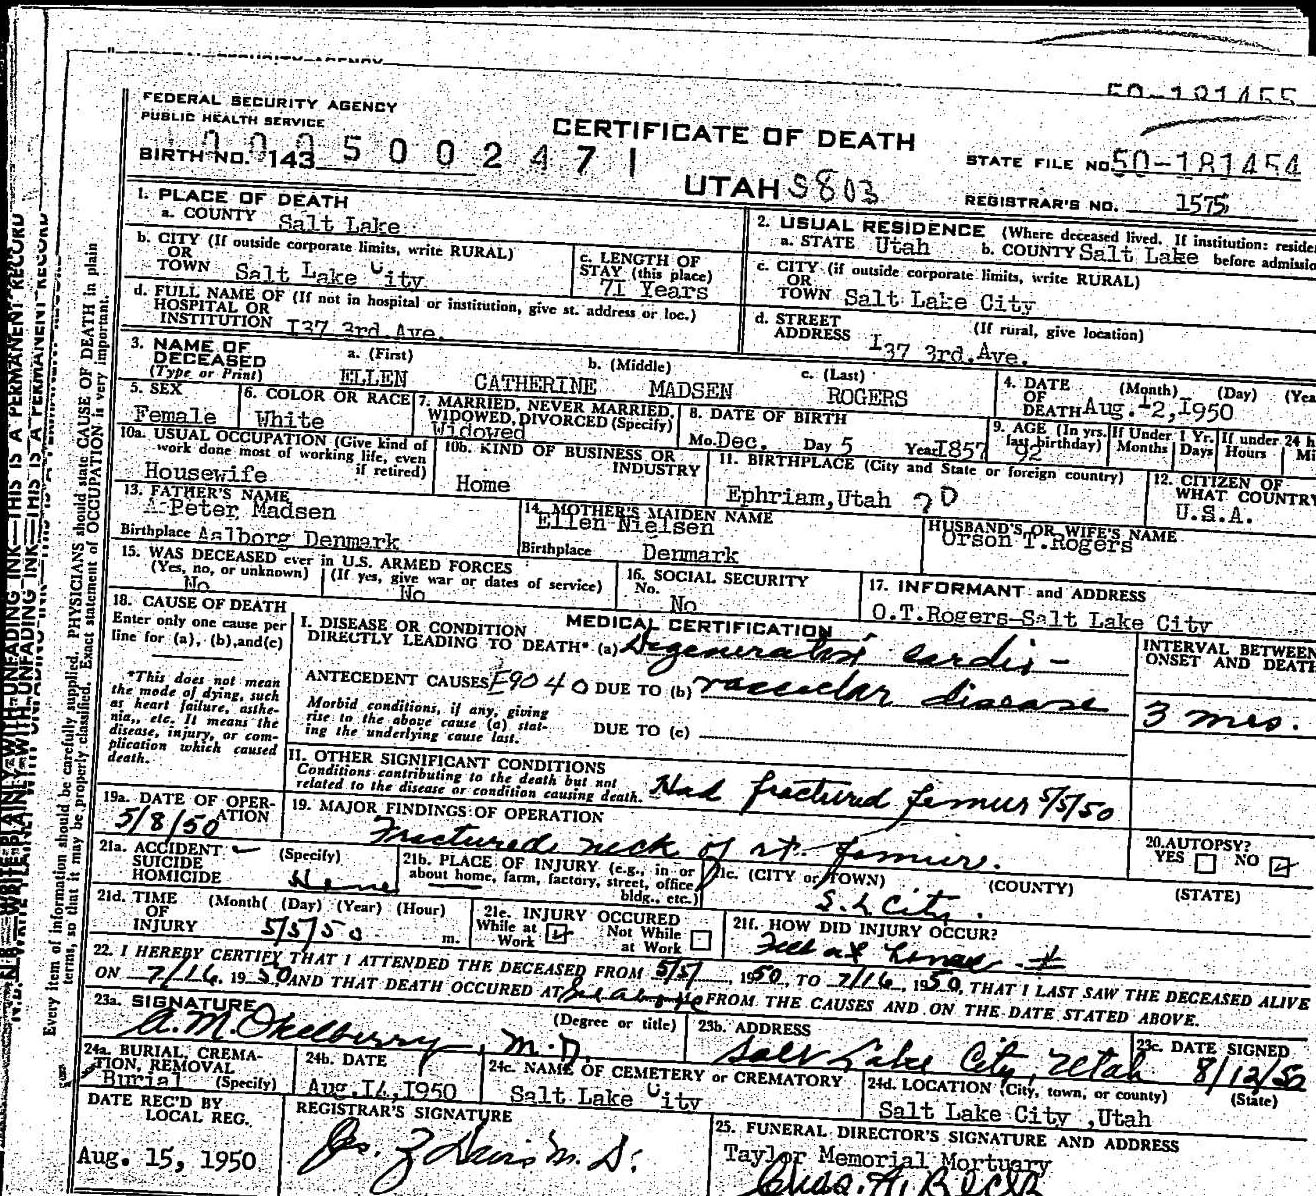 50-181455
FEDERAL SECURITY AGENCY
PUBLIC HEALTH SERVICE
CERTIFICATE OF DEATH
BIRTH NO. 143 0005002471
STATE FILE NO. 50-181454
UTAH S803
REGISTRAR'S NO. 1575
1. PLACE OF DEATH
a. COUNTY Salt Lake
2. USUAL RESIDENCE (Where deceased lived. If institution: reside
a. STATE Utah b. COUNTY Salt Lake before admissio
b. CITY (If outside corporate limits, write RURAL)
OR
TOWN Salt Lake City
c. LENGTH OF
STAY (this place)
71 Years
c. CITY (if outside corporate limits, write RURAL)
OR
TOWN Salt Lake City
d. FULL NAME OF (If not in hospital or institution, give st. address or loc.)
HOSPITAL OR
INSTITUTION I37 3rd Ave.
d. STREET (If rural, give location)
ADDRESS I37 3rd.Ave.
3. NAME OF
DECEASED
(Type or Print)
a. (First) b. (Middle) c. (Last)
ELLEN CATHERINE MADSEN ROGERS
4. DATE (Month) (Day) (Yea
OF
DEATH Aug.-2,I950
5. SEX
Female
6. COLOR OR RACE
White
7. MARRIED, NEVER MARRIED,
WIDOWED, DIVORCED (Specify)
Widowed
8. DATE OF BIRTH
Mo. Dec. Day 5 Year I857
9. AGE (In yrs. last birthday) 92
If Under 1 Yr.
Months Days
If under 24 h
Hours Mi
10a. USUAL OCCUPATION (Give kind of
work done most of working life, even
if retired)
Housewife
10b. KIND OF BUSINESS OR
INDUSTRY
Home
11. BIRTHPLACE (City and State or foreign country)
Ephriam,Utah
12. CITIZEN OF
WHAT COUNTR
U.S.A.
13. FATHER'S NAME
Peter Madsen
Birthplace Aalborg Denmark
14. MOTHER'S MAIDEN NAME
Ellen Nielsen
Birthplace Denmark
HUSBAND'S OR WIFE'S NAME
Orson T.Rogers
15. WAS DECEASED ever in U.S. ARMED FORCES
(Yes, no, or unknown) (If yes, give war or dates of service)
No No
16. SOCIAL SECURITY
No.
No
17. INFORMANT and ADDRESS
O.T.Rogers-Salt Lake City
18. CAUSE OF DEATH
Enter only one cause per
line for (a), (b),and(c)
*This does not mean
the mode of dying, such
as heart failure, asthe-
nia,, etc. It means the
disease, injury, or com-
plication which caused
death.
MEDICAL CERTIFICATION
I. DISEASE OR CONDITION
DIRECTLY LEADING TO DEATH* (a) Degenerative cardio-
ANTECEDENT CAUSES E9040 DUE TO (b) vascular disease
Morbid conditions, if any, giving
rise to the above cause (a) stat-
ing the underlying cause last.
DUE TO (c)
INTERVAL BETWEEN
ONSET AND DEATH
3 mos.
11. OTHER SIGNIFICANT CONDITIONS
Conditions contributing to the death but not
related to the disease or condition causing death.
Had fractured femur 5/5/50
19a. DATE OF OPER-
ATION
5/8/50
19. MAJOR FINDINGS OF OPERATION
Fractured neck of rt. femur.
20. AUTOPSY?
YES NO
21a. ACCIDENT
SUICIDE
HOMICIDE
(Specify)
21b. PLACE OF INJURY (e.g., in or
about home, farm, factory, street, office
bldg., etc.)
Home
21c. (CITY or TOWN) (COUNTY) (STATE)
S. L City.
21d. TIME (Month( (Day) (Year) (Hour)
OF
INJURY 5/5/50 m.
21e. INJURY OCCURED
While at Work
Not While at Work
21f. HOW DID INJURY OCCUR?
Fell at home
22. I HEREBY CERTIFY THAT I ATTENDED THE DECEASED FROM 5/5/, 1950, TO 7/16, 1950, THAT I LAST SAW THE DECEASED ALIVE
ON 7/16, 1950 AND THAT DEATH OCCURED AT FROM THE CAUSES AND ON THE DATE STATED ABOVE.
23a. SIGNATURE (Degree or title)
A.M. Okelberry, M.D.
23b. ADDRESS
Salt Lake City, Utah
23c. DATE SIGNED
8/12/50
24a. BURIAL, CREMA-
TION, REMOVAL
Burial (Specify)
24b. DATE
Aug.I4,I950
24c. NAME OF CEMETERY or CREMATORY
Salt Lake City
24d. LOCATION (City, town, or county) (State)
Salt Lake City ,Utah
DATE REC'D BY
LOCAL REG.
Aug. 15, 1950
REGISTRAR'S SIGNATURE
25. FUNERAL DIRECTOR'S SIGNATURE AND ADDRESS
Taylor Memorial Mortuary
Every item of information should be carefully supplied. PHYSICIANS should state CAUSE OF DEATH in plain
terms, so that it may be properly classified. Exact statement of OCCUPATION is very important.